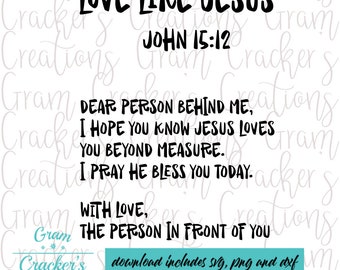 LOVE LIKE JESUS
JOHN 15:12
DEAR PERSON BEHIND ME,
I HOPE YOU KNOW JESUS LOVES
YOU BEYOND MEASURE.
I PRAY HE BLESS YOU TODAY.
WITH LOVE,
THE PERSON IN FRONT OF YOU
Gram
Cracker's
download includes svg, png and dxf
Gram
Cracker's
Creations